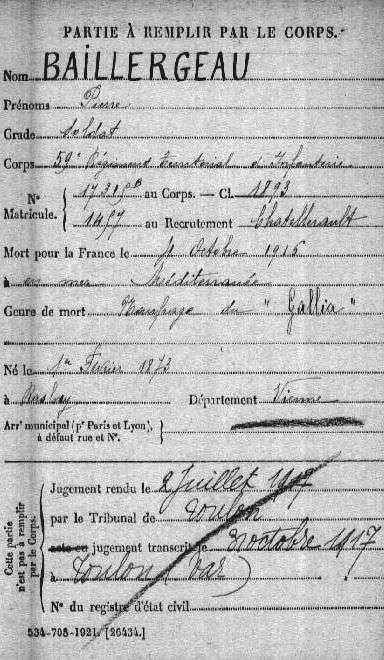 PARTIE À REMPLIR PAR LE CORPS.
Nom BAILLERGEAU
Prénoms Pierre
Grade Soldat
Corps 59e Régiment Territorial d'Infanterie
N° Matricule. { au Corps. — Cl. 1893
1457 au Recrutement Chatellerault
Mort pour la France le 4 Octobre 1916
à en mer Méditerranée
Genre de mort Naufrage du "Gallia"
Né le 1er Février 1873
à Département Vienne
Arrt municipal (pr Paris et Lyon), à défaut rue et N°. }
Cette partie n'est pas à remplir par le Corps.
Jugement rendu le 2 Juillet 1917
par le Tribunal de Toulon
acte ou jugement transcrit le 3 octobre 1917
à Toulon (Var)
N° du registre d'état civil
534-708-1921. [26434.]